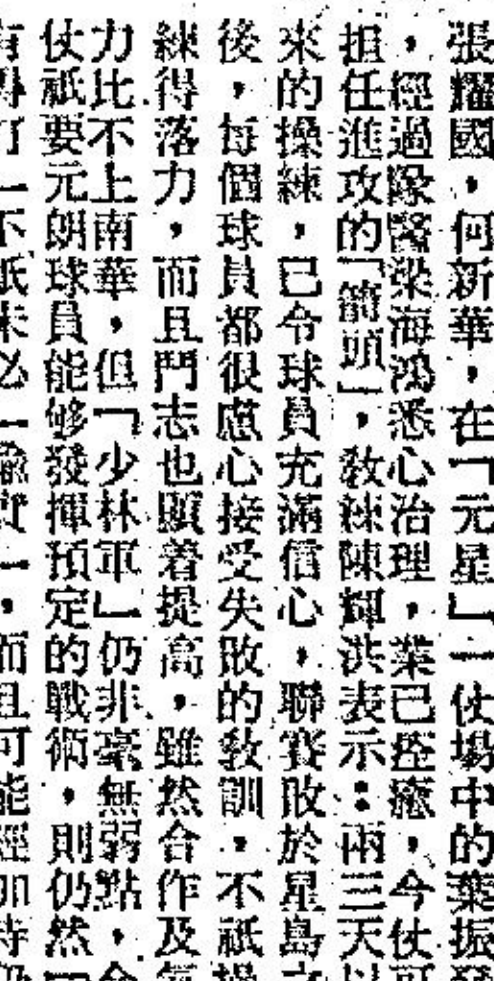 張耀國，何新華，在「元星」一仗場中的葉振發
，經過隊醫梁海鴻悉心治理，葉已痊癒，今仗可
担任進攻的「箭頭」，敎練陳輝洪表示：兩三天以
來的操練，已令球員充滿信心，聯賽敗於星島之
後，每個球員都很虛心接受失敗的敎訓，不祇操
練得落力，而且鬥志也顯着提高，雖然合作及氣
力比不上南華，但「少林軍」仍非毫無弱點，今
仗祇要元朗球員能够發揮預定的戰術，則仍然「
有得打」不祇未必「輸實」，而且可能經加時仍